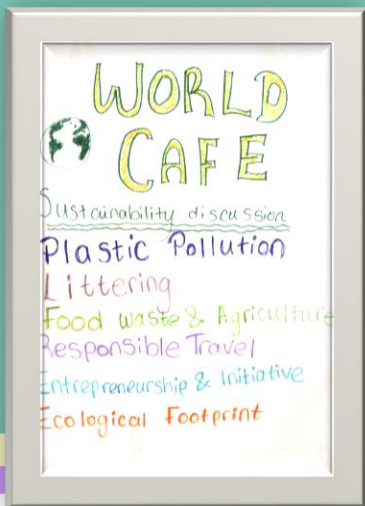 WORLD
CAFE
Sustainability discussion
Plastic Pollution
Littering
Food waste & Agriculture
Responsible Travel
Entrepreneurship & Initiative
Ecological Footprint